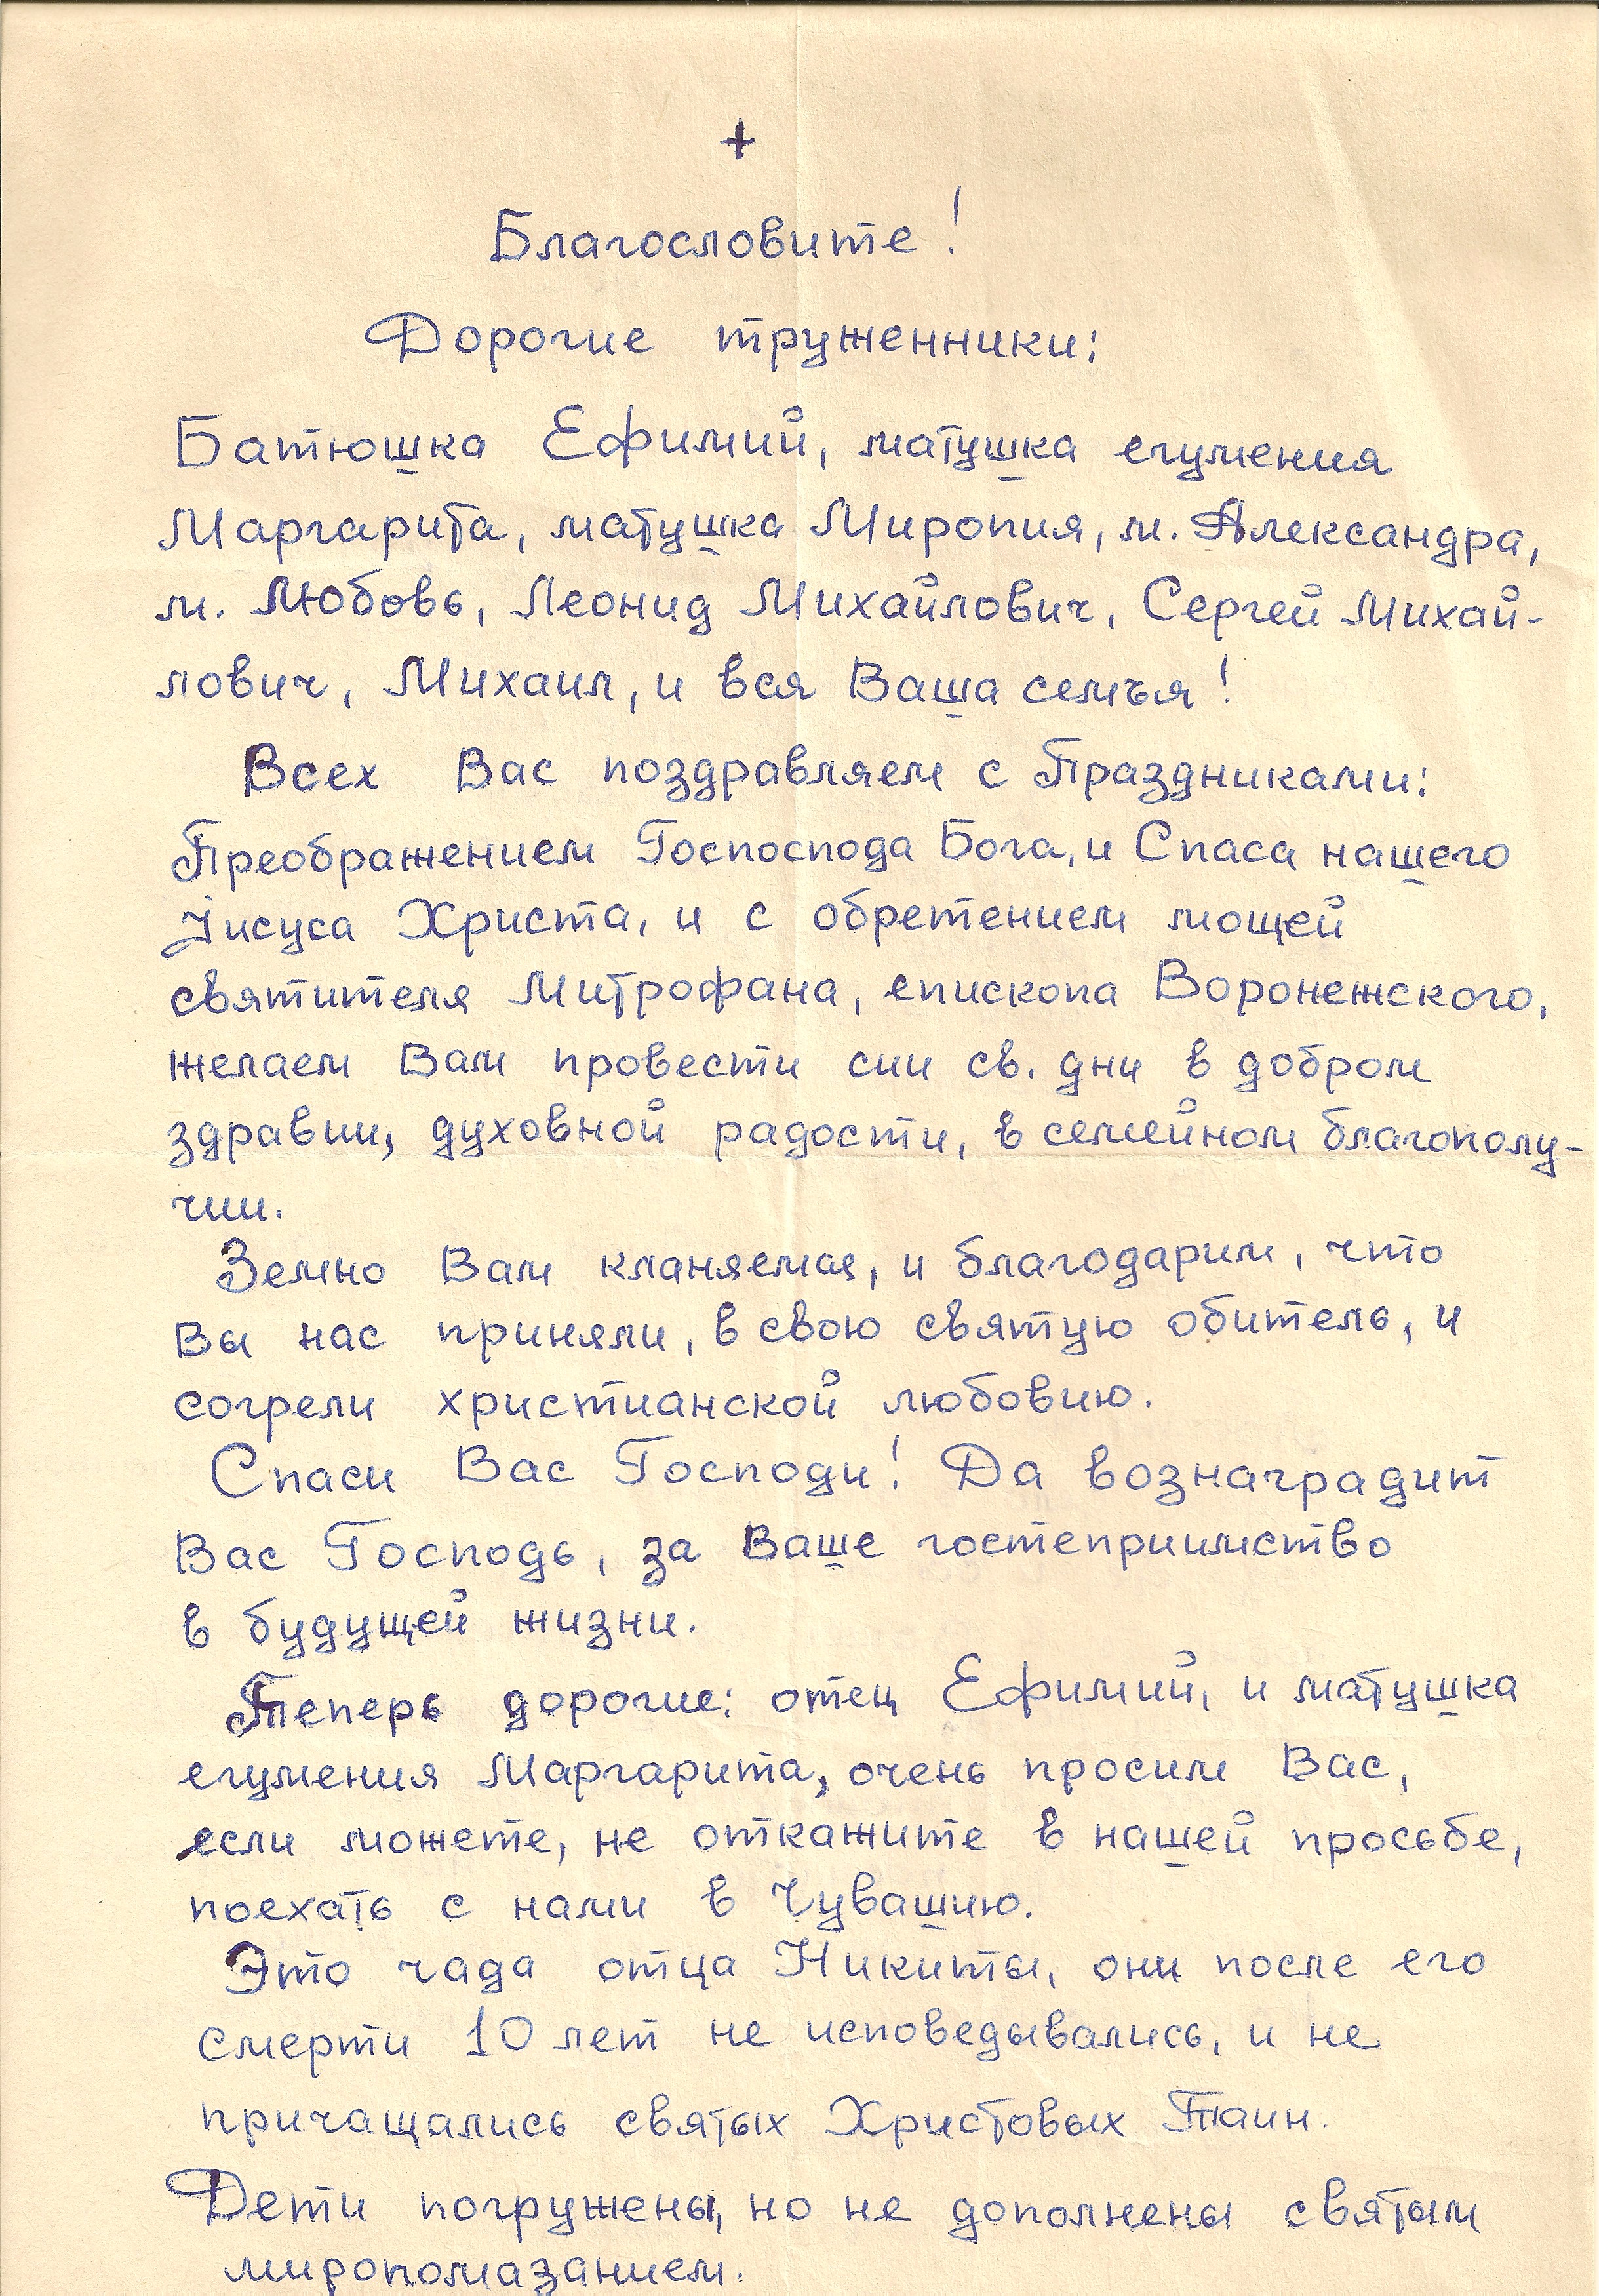 +
Благословите!
Дорогие труженники:
Батюшка Ефимий, матушка егумения
Маргарита, матушка Миропия, м. Александра,
м. Любовь, Леонид Михайлович, Сергей Михай-
лович, Михаил, и вся Ваша семья!
Всех Вас поздравляем с Праздниками:
Преображением Госпоспода Бога, и Спаса нашего
Iисуса Христа, и с обретением мощей
святителя Митрофана, епископа Воронежского,
желаем Вам провести сии св. дни в добром
здравии, духовной радости, в семейном благополу-
чии.
Земно Вам кланяемся, и благодарим, что
Вы нас приняли, в свою святую обитель, и
согрели христианской любовию.
Спаси Вас Господи! Да вознаградит
Вас Господь, за Ваше гостеприимство
в будущей жизни.
Теперь дорогие: отец Ефимий, и матушка
егумения Маргарита, очень просим Вас,
если можете, не откажите в нашей просьбе,
поехать с нами в Чувашию.
Это чада отца Никиты, они после его
смерти 10 лет не исповедывались, и не
причащались святых Христовых Таин.
Дети погружены, но не дополнены святым
миропомазанием.